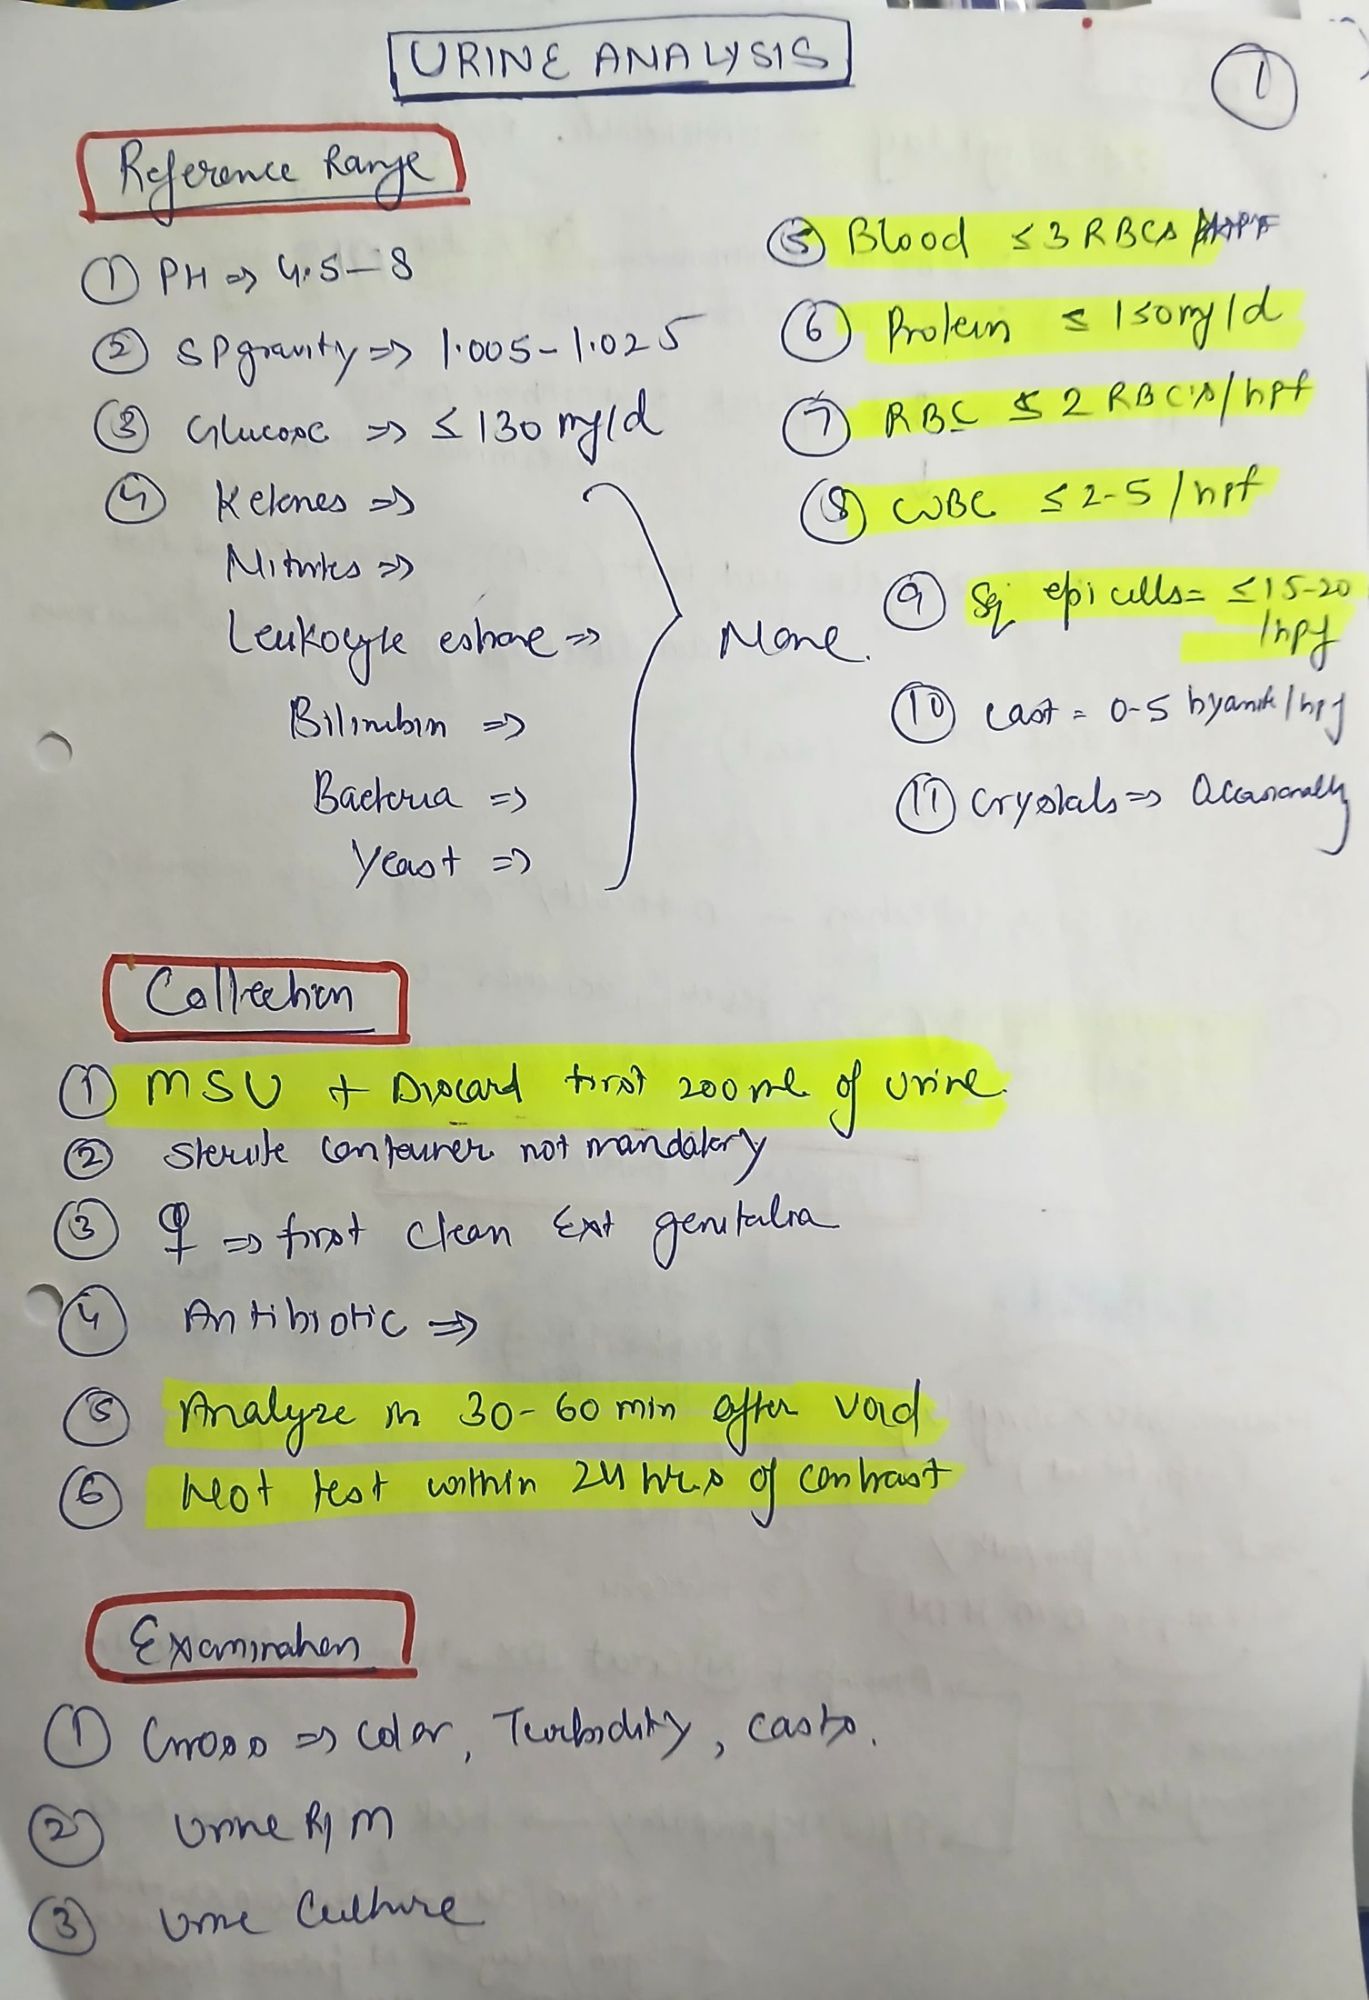 URINE ANALYSIS
1
Reference Range
① PH ⇒ 4.5–8
② SP gravity ⇒ 1.005–1.025
③ Glucose ⇒ ≤ 130 mg/d
④ Ketones ⇒
Nitrites ⇒
Leukocyte estrase ⇒
Bilirubin ⇒
Bacteria ⇒
Yeast ⇒
None.
⑤ Blood ≤ 3 RBCs
⑥ Protein ≤ 150mg/d
⑦ RBC ≤ 2 RBC's/hpf
⑧ WBC ≤ 2-5/hpf
⑨ Sq epi cells = ≤15-20
/hpf
⑩ Cast = 0-5 /hpf
⑪ Crystals ⇒ Occasionally
Collection
① MSU + Discard first 200ml of urine.
② Sterile container not mandatory
③ ♀ ⇒ first clean Ext genitalia
④ Antibiotic ⇒
⑤ Analyze in 30-60 min after void
⑥ Not test within 24 hrs of contrast
Examination
① Gross ⇒ color, Turbidity, casts.
② Urine R/M
③ Urine Culture